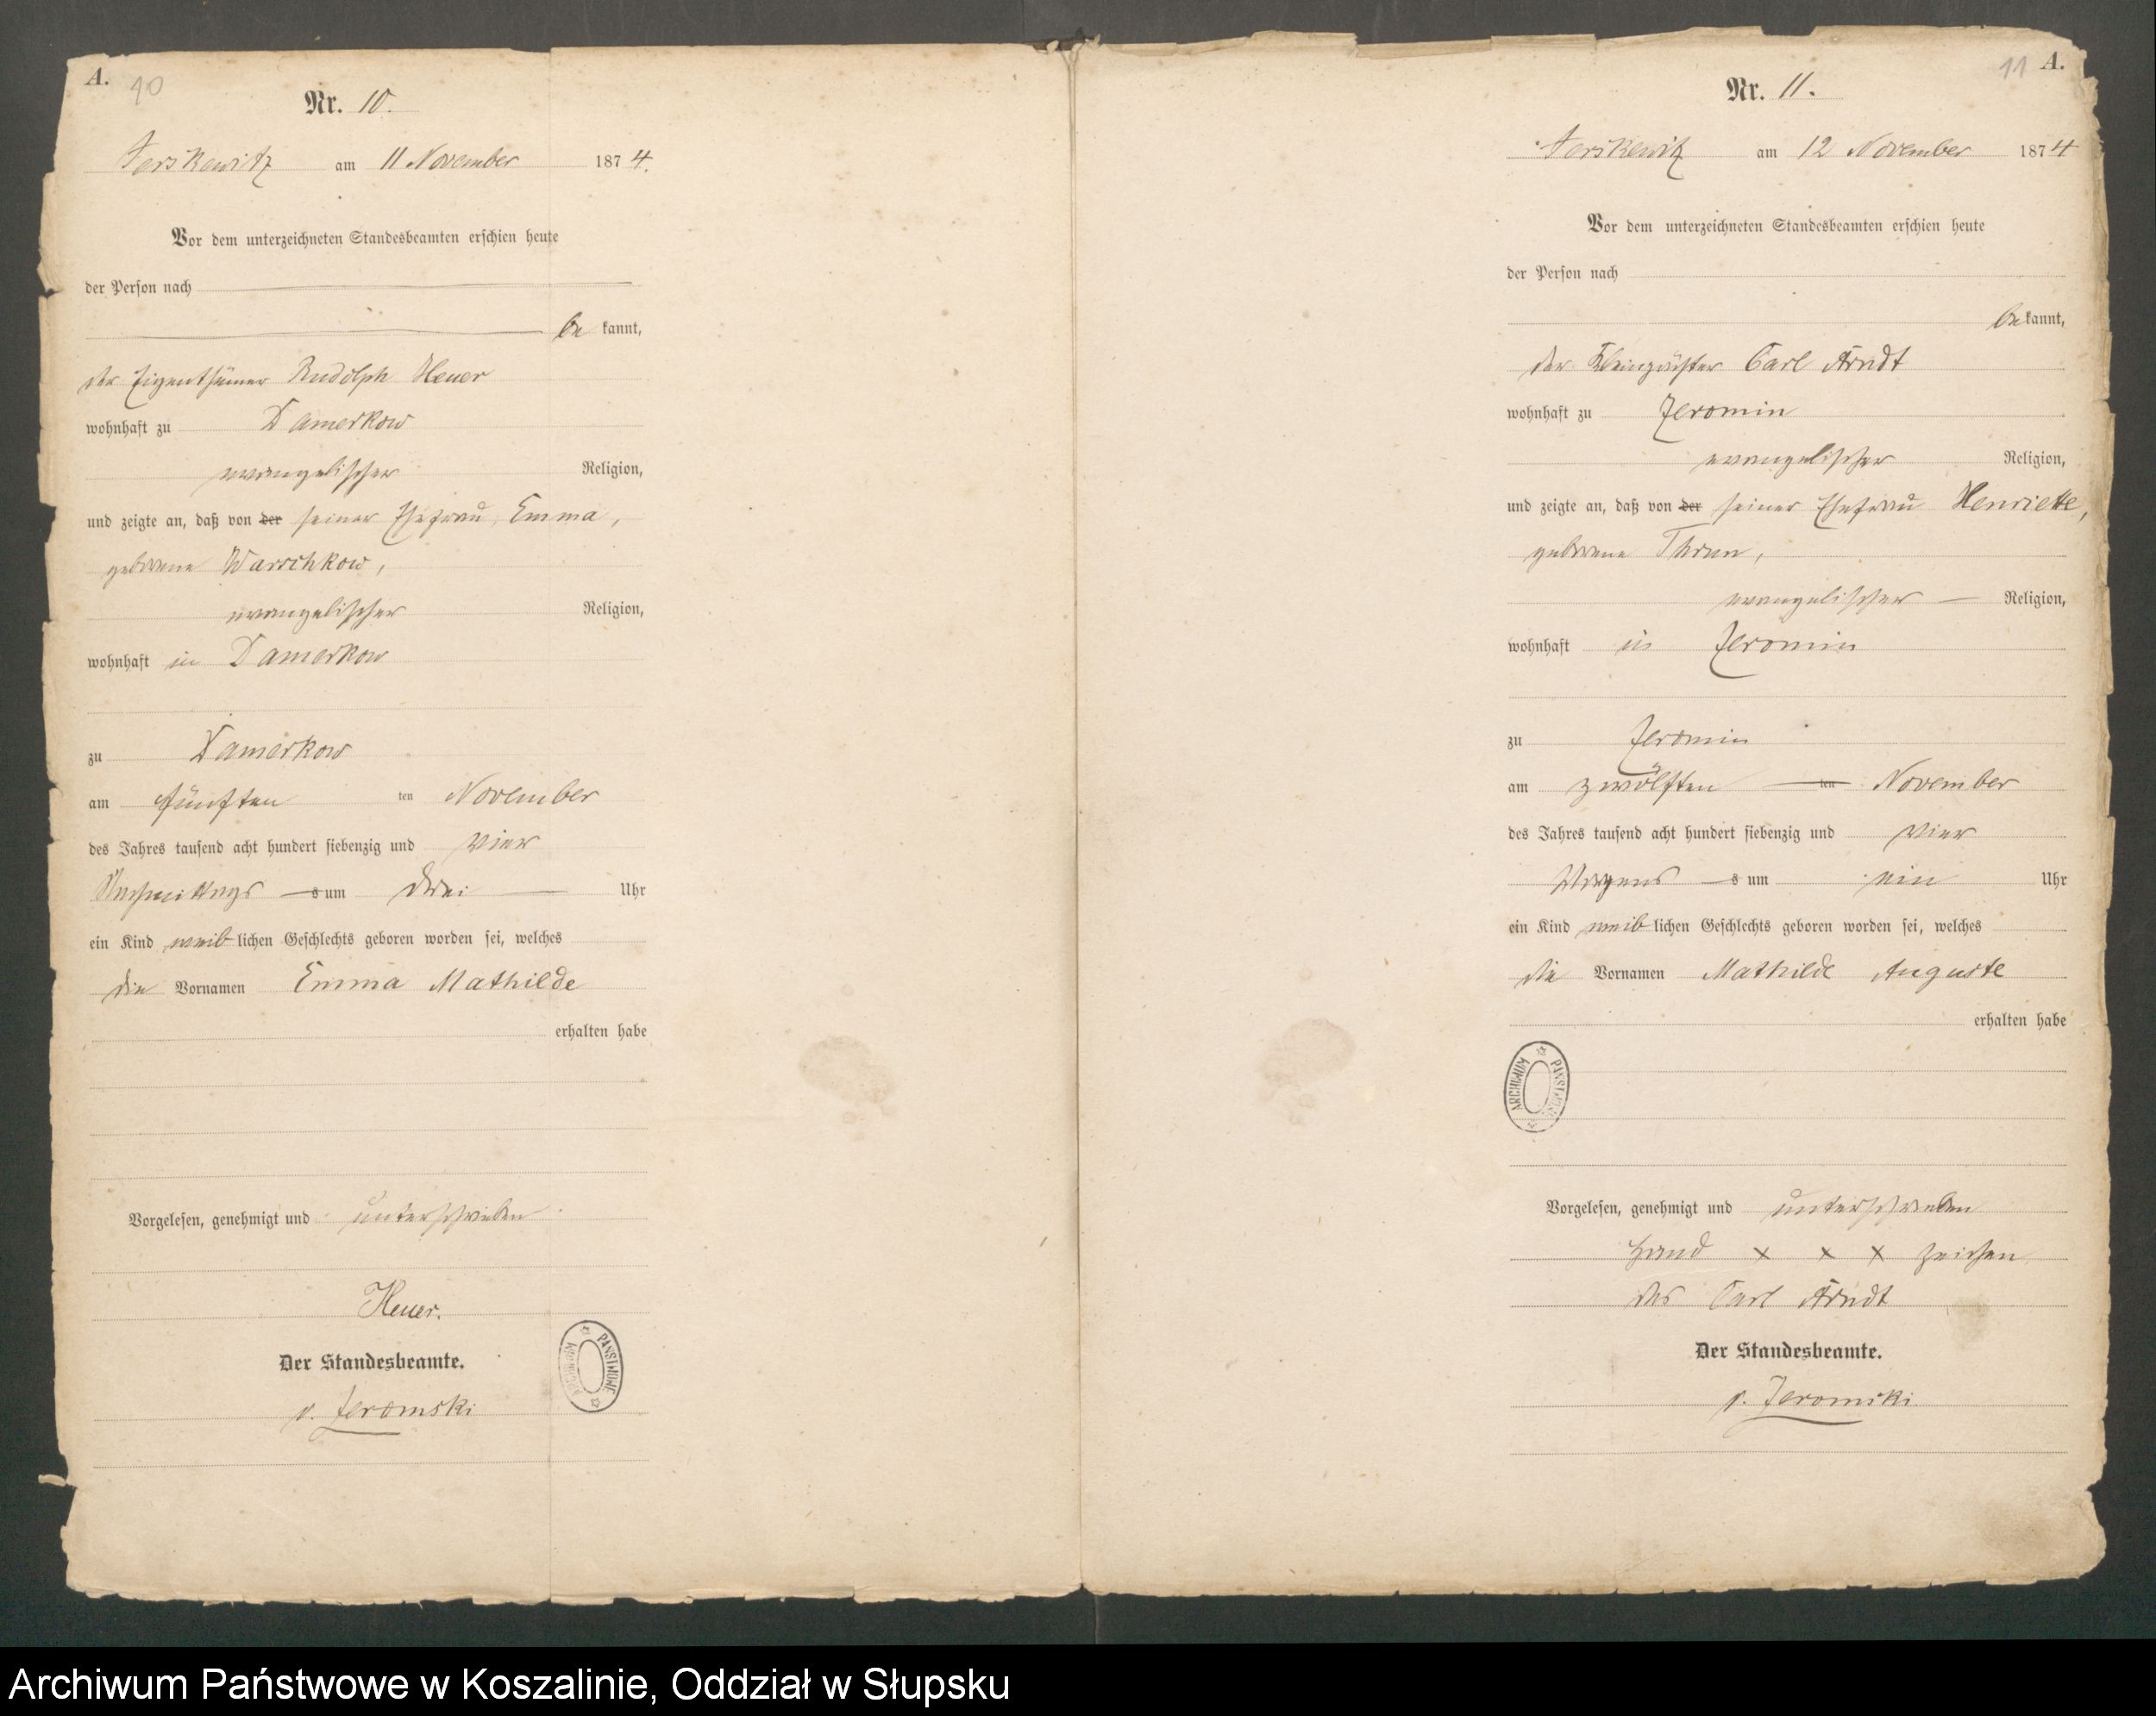 A.
10
Nr. 10.
Jerskewitz am 11 November 1874.
Vor dem unterzeichneten Standesbeamten erschien heute
der Person nach
be kannt,
der Eigenthümer Rudolph Heuer
wohnhaft zu Damerkow
evangelischer Religion,
und zeigte an, daß von der seiner Ehefrau, Emma,
geborene Warschkow,
evangelischer Religion,
wohnhaft in Damerkow
zu Damerkow
am fünften ten November
des Jahres tausend acht hundert siebenzig und vier
Nachmittags s um drei Uhr
ein Kind weib lichen Geschlechts geboren worden sei, welches
die Vornamen Emma Mathilde
erhalten habe
Vorgelesen, genehmigt und unterschrieben
Heuer.
Der Standesbeamte.
v. Jeromski
ARCHIWUM PAŃSTWOWE
11 A.
Nr. 11.
Jerskewitz am 12 November 1874
Vor dem unterzeichneten Standesbeamten erschien heute
der Person nach
be kannt,
der Carl Arndt
wohnhaft zu Jeromin
evangelischer Religion,
und zeigte an, daß von der seiner Ehefrau Henriette,
geborene Thrun,
evangelischer Religion,
wohnhaft in Jeromin
zu Jeromin
am zwölften ten November
des Jahres tausend acht hundert siebenzig und vier
Morgens s um ein Uhr
ein Kind weib lichen Geschlechts geboren worden sei, welches
die Vornamen Mathilde Auguste
erhalten habe
ARCHIWUM PAŃSTWOWE
Vorgelesen, genehmigt und unterschrieben
Hand x x x zeichen
des Carl Arndt
Der Standesbeamte.
v. Jeromski
Archiwum Państwowe w Koszalinie, Oddział w Słupsku